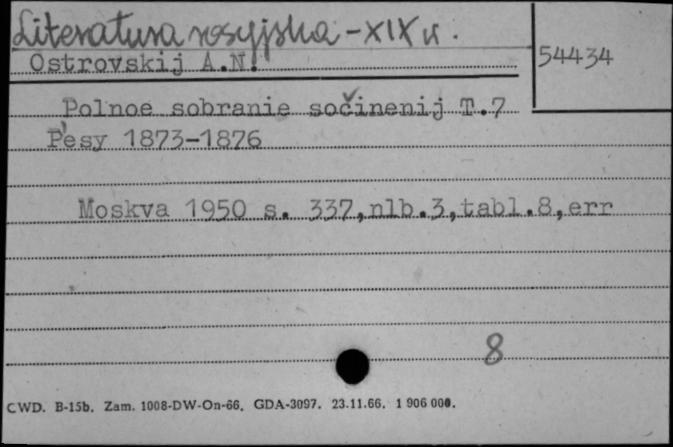 Literatura rosyjska - XIX w.
Ostrovskij A.N.
54434
Polnoe sobranie sočinenij T.7
P'esy 1873-1876
Moskva 1950 s. 337,nlb.3,tabl.8,err
8
CWD. B-15b. Zam. 1008-DW-On-66. GDA-3097. 23.11.66. 1 906 000.